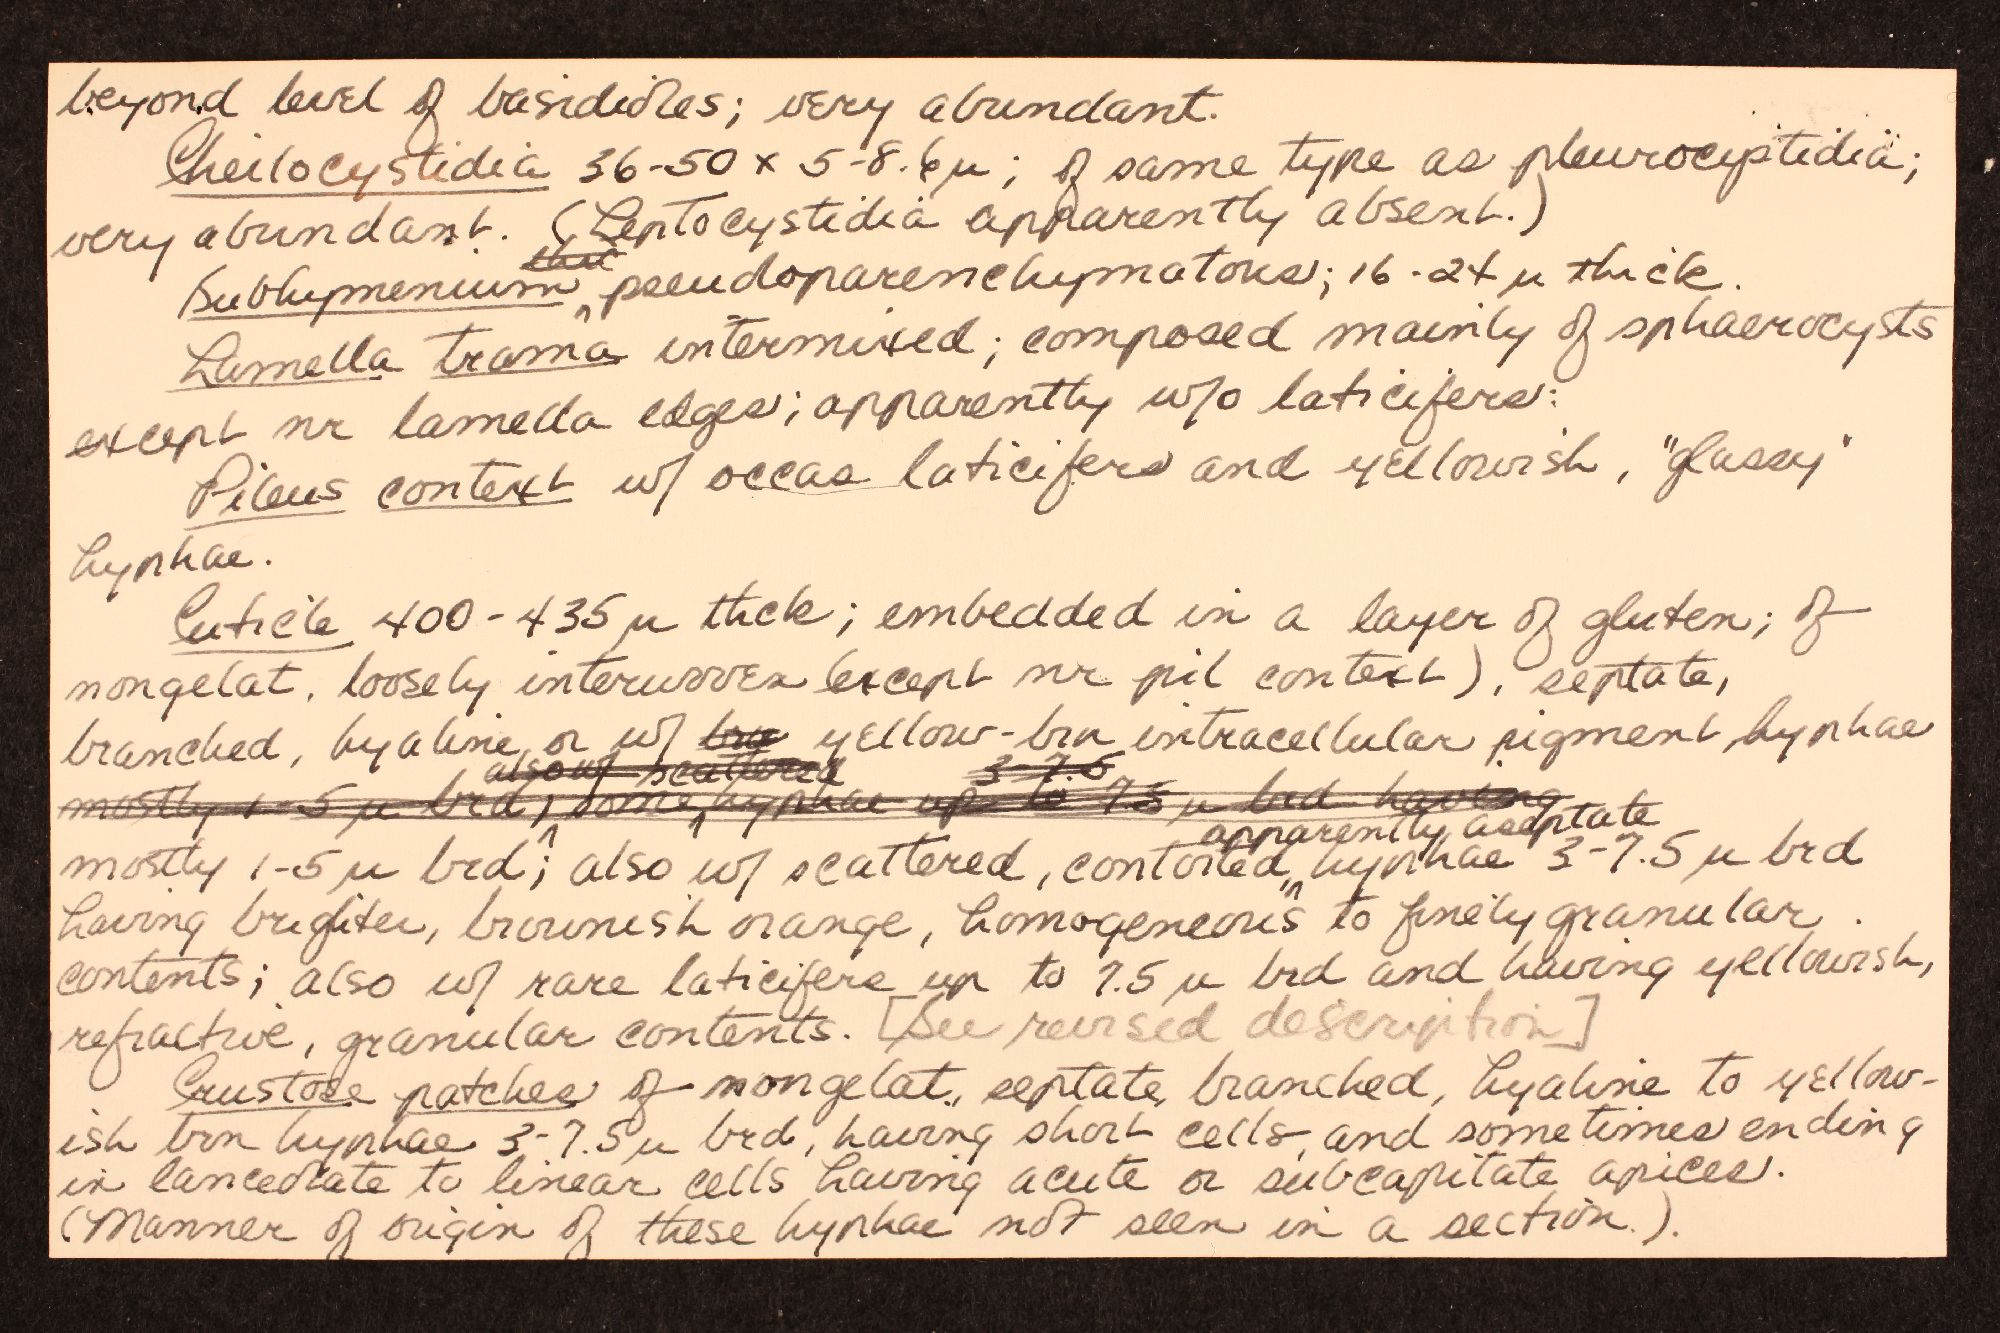 beyond level of basidioles; very abundant.
Cheilocystidia 36-50 x 5-8.6 µ; of same type as pleurocystidia;
very abundant. (Leptocystidia apparently absent.)
Subhymenium pseudoparenchymatous; 16-24 µ thick.
Lamella trama intermixed; composed mainly of sphaerocysts
except nr lamella edges; apparently w/o laticifers.
Pileus context w/ occas laticifers and yellowish, "glassy"
hyphae.
Cuticle 400-435 µ thck; embedded in a layer of gluten; of
nongelat, loosely interwoven (except nr pil context), septate,
branched, hyaline or w/ brn yellow-brn intracellular pigment hyphae
also w/ scattered 3-7.5
mostly 1-5 µ brd; some hyphae up to 7.5 µ brd having
apparently aseptate
mostly 1-5 µ brd; also w/ scattered, contorted, hyphae 3-7.5 µ brd
having brighter, brownish orange, homogeneous to finely granular
contents; also w/ rare laticifers up to 7.5 µ brd and having yellowish,
refractive, granular contents. [See revised description]
Crustose patches of nongelat., septate, branched, hyaline to yellow-
ish brn hyphae 3-7.5 µ brd, having short cells, and sometimes ending
in lanceolate to linear cells having acute or subcapitate apices.
(Manner of origin of these hyphae not seen in a section.).